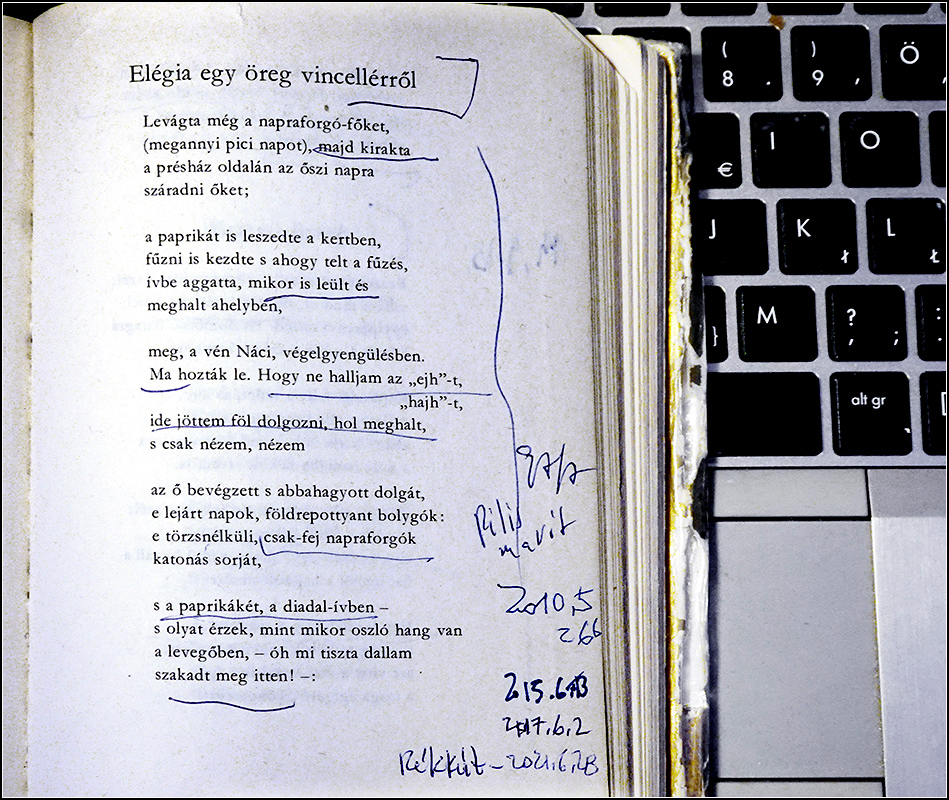 Elégia egy öreg vincellérről
Levágta még a napraforgó-főket,
(megannyi pici napot), majd kirakta
a présház oldalán az őszi napra
száradni őket;
a paprikát is leszedte a kertben,
fűzni is kezdte s ahogy telt a fűzés,
ívbe aggatta, mikor is leült és
meghalt ahelybén,
meg, a vén Náci, végelgyengülésben.
Ma hozták le. Hogy ne halljam az „ejh”-t,
„hajh”-t,
ide jöttem föl dolgozni, hol meghalt,
s csak nézem, nézem
az ő bevégzett s abbahagyott dolgát,
e lejárt napok, földrepottyant bolygók:
e törzsnélküli, csak-fej napraforgók
katonás sorját,
s a paprikákét, a diadal-ívben –
s olyat érzek, mint mikor oszló hang van
a levegőben, – óh mi tiszta dallam
szakadt meg itten! –:
Pilis
marót
2010,5
266
2017.6.2
Rékkút – 2021.6.28
( 8 .
) 9 ,
Ö
€
I
O
J
K ł
L Ł
}
M
? , ;
:
alt gr